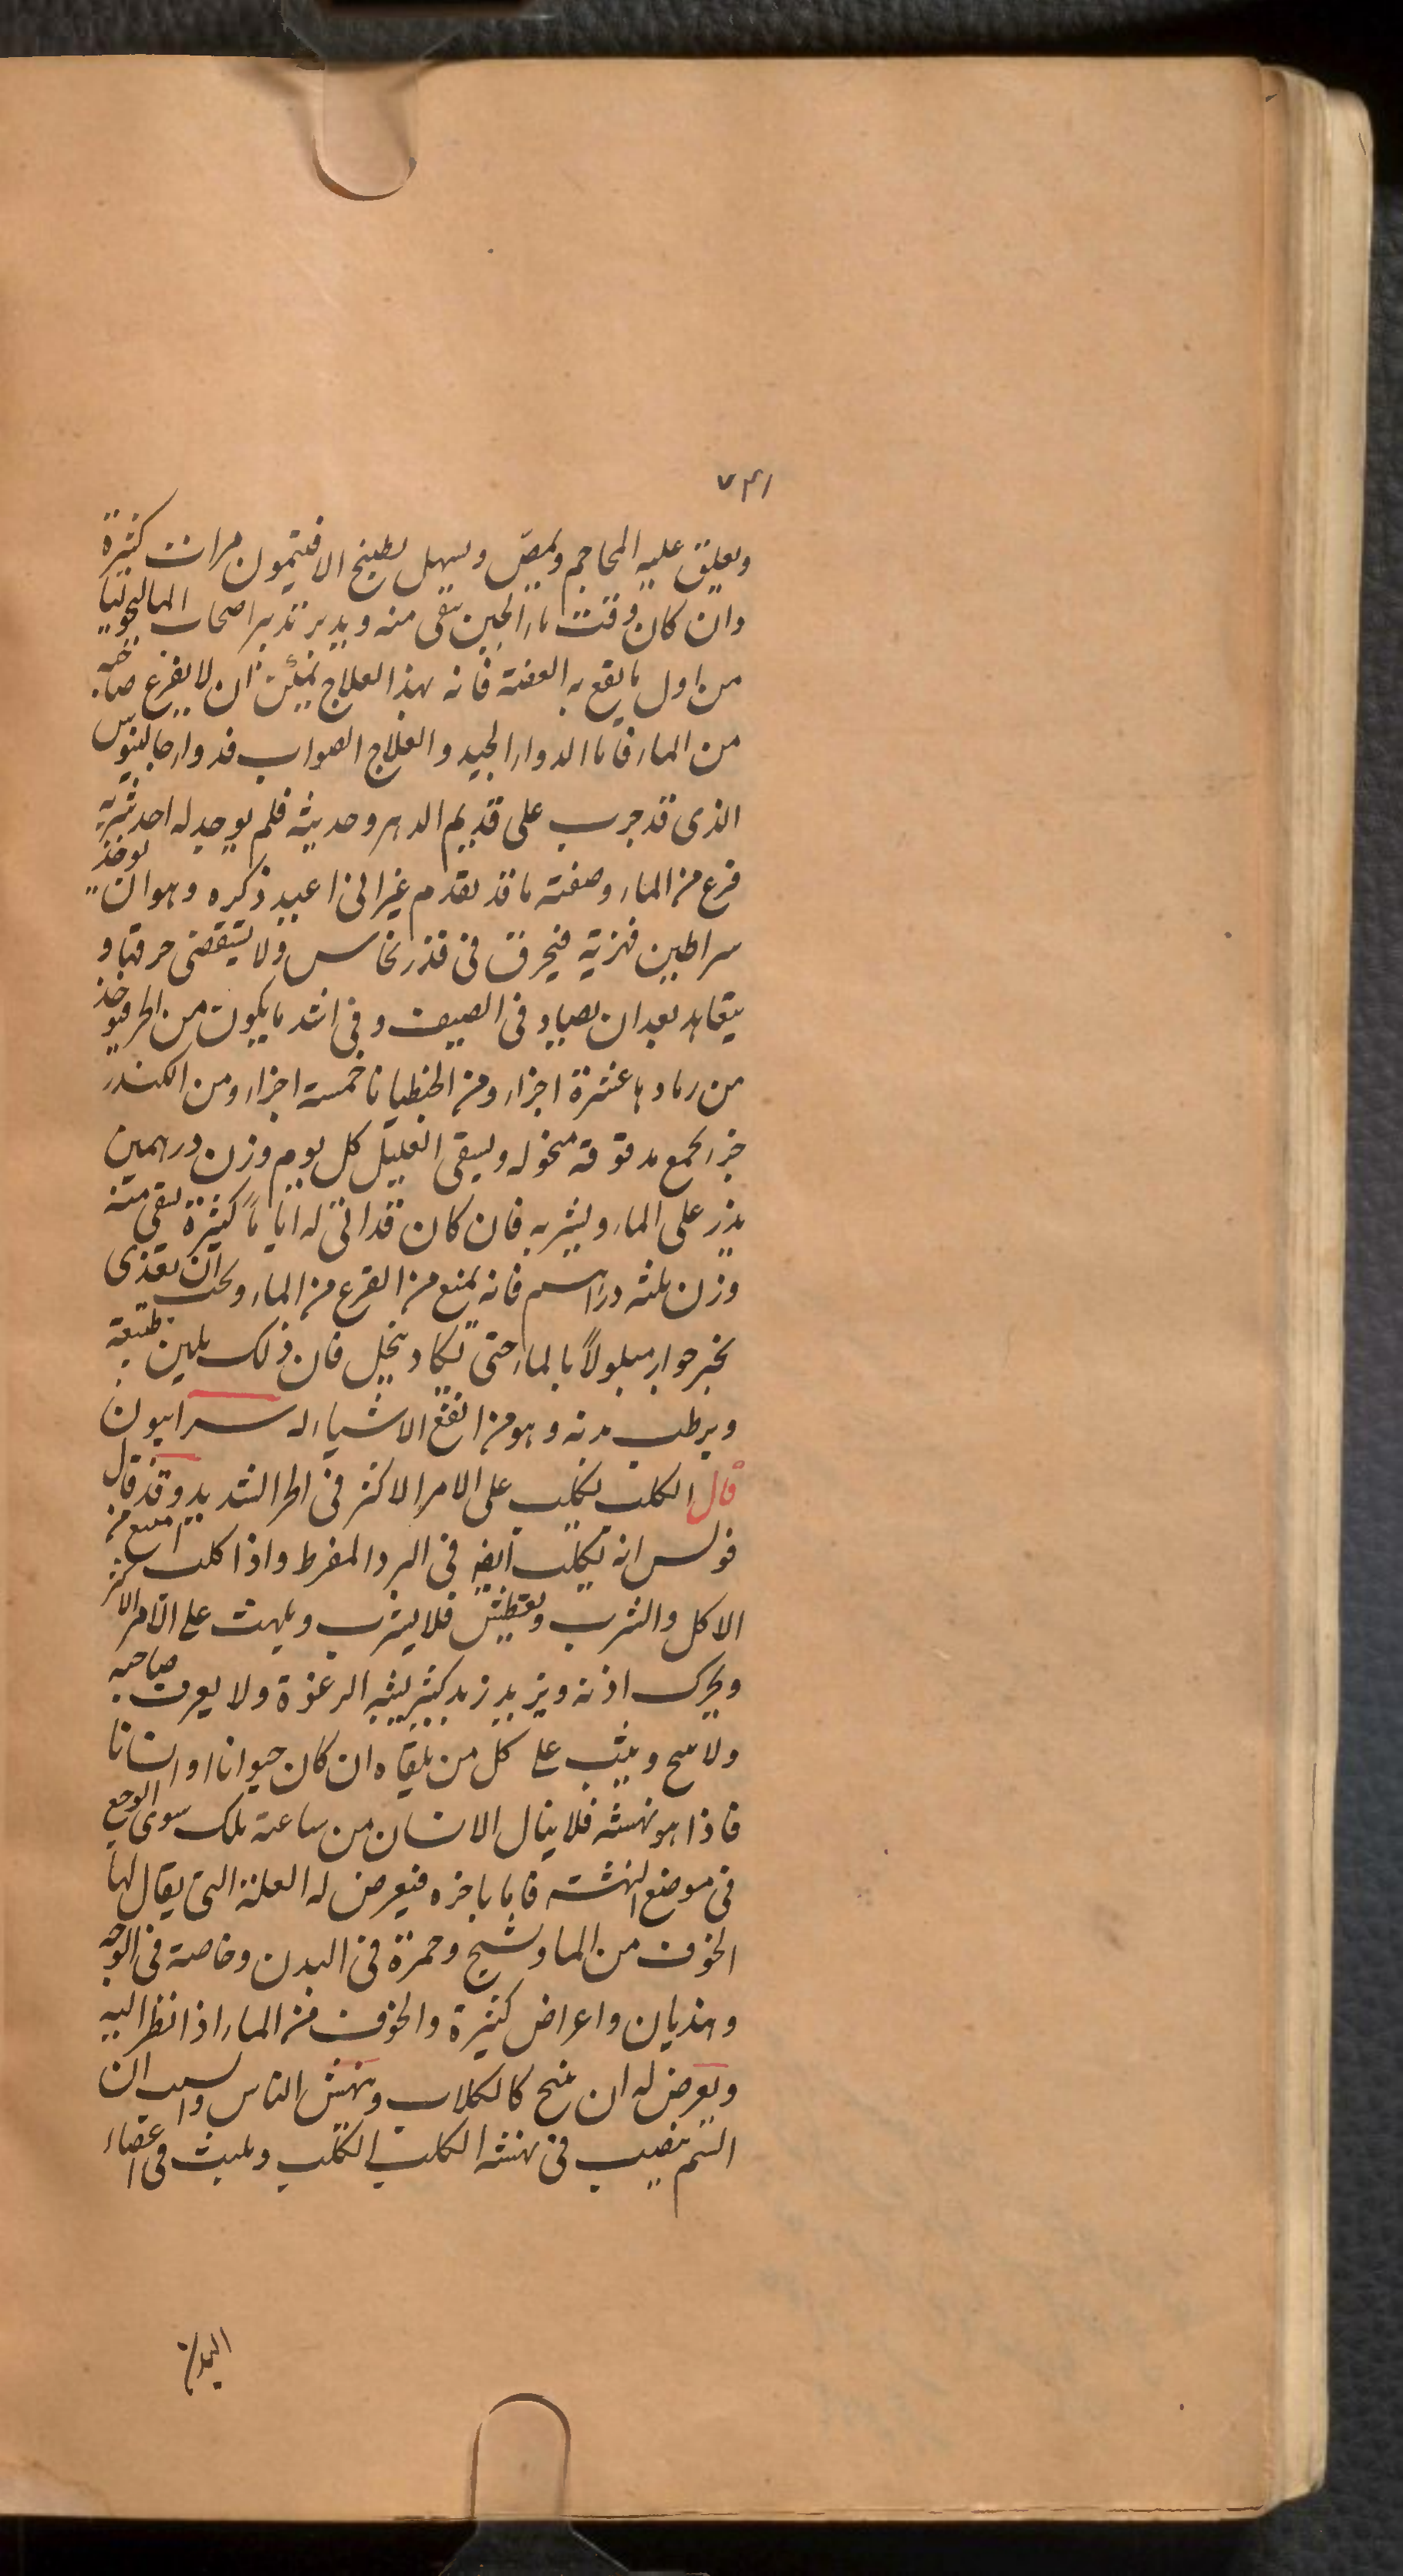 ٧٣١
ويعلق عليه المحاجم ويمص ويسهل بطبيخ الافتيمون مرات كثيرة
وان كان وقت ماء الجبن سقى منه ويدبر تدبير اصحاب الماليخوليا
من اول ما يقع به العضة فانه بهذا العلاج يمكن ان لا يفزع صاحبه
من الماء فاما الدواء الجيد والعلاج الصواب فدواء جالينوس
الذى قد جرب على قديم الدهر وحديثه فلم يوجد له احد شربه
فزع من الماء وصفته ما قد تقدم غير انى اعيد ذكره وهو ان يوخذ
سراطين نهرية فيحرق فى قدر نحاس ولا يستقصى حرقها و
يتعاهد بعد ان يصاد فى الصيف وفى اشد ما يكون من الحر فيوخذ
من رمادها عشرة اجزاء ومن الجنطيانا خمسة اجزاء ومن الكندر
جزء يجمع مدقوقة منخوله ويسقى العليل كل يوم وزن درهمين
يذر على الماء ويشربه فان كان قد اتى له اياماً كثيرة يسقى منه
وزن ثلثه دراهم فانه يمنع من الفزع من الماء ويجب ان يغذى
بخبز حوارى مبلولاً بالماء حتى يكاد ينحل فان ذلك يلين طبيعته
ويرطب بدنه وهو من انفع الاشياء له سرابيون
قال الكلب يكلب على الامر الاكثر فى الحر الشديد وقد قال
فولس انه يكلب ايضا فى البرد المفرط واذا كلب امتنع من
الاكل والشرب ويعطش فلا يشرب ويلهث على الامر الاكثر
ويحرك اذنه ويزبد زبد كثير يشبه الرغوة ولا يعرف صاحبه
ولا ينبح ويثب على كل من يلقاه ان كان حيوانا او انسانا
فاذا هو نهشه فلا ينال الانسان من ساعته تلك سوى الوجع
فى موضع النهشه فاما باخره فيعرض له العلة التى يقال لها
الخوف من الماء وتشنج وحمرة فى البدن وخاصة فى الوجه
وهذيان واعراض كثيرة والخوف من الماء اذا نظر اليه
ويعرض له ان ينبح كالكلاب وينهش الناس والسبب ان
السم ينصب فى نهشه الكلب الكلب ويلبث فى اعضاء
البدن